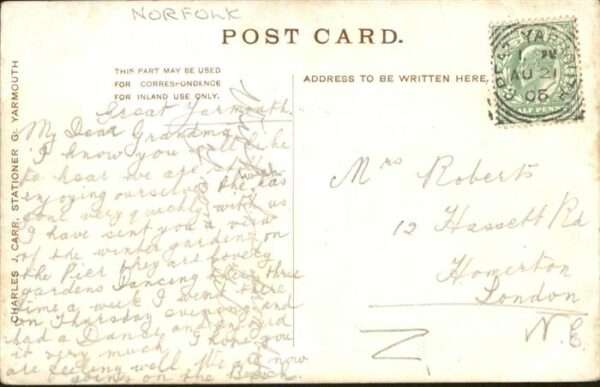 NORFOLK
POST CARD.
THIS PART MAY BE USED
FOR CORRESPONDENCE
FOR INLAND USE ONLY.
ADDRESS TO BE WRITTEN HERE.
CHARLES J. CARR, STATIONER G: YARMOUTH
GREAT YARMOUTH
AU 21
05
Great Yarmouth
My Dear Grandma
I know you will like
to hear we are all
enjoying ourselves the has
gone very quickly with us
I have sent you a view
of the winter gardens on
the Pier they are lovely
gardens Dancing there three
time a week I went there
on Thursday evening and
had a Dance and enjoyed
it very much I hope you
are feeling well We are now
going on the Beach.
Mrs Roberts
12 Hassett Rd
Homerton
London
N.E.
N